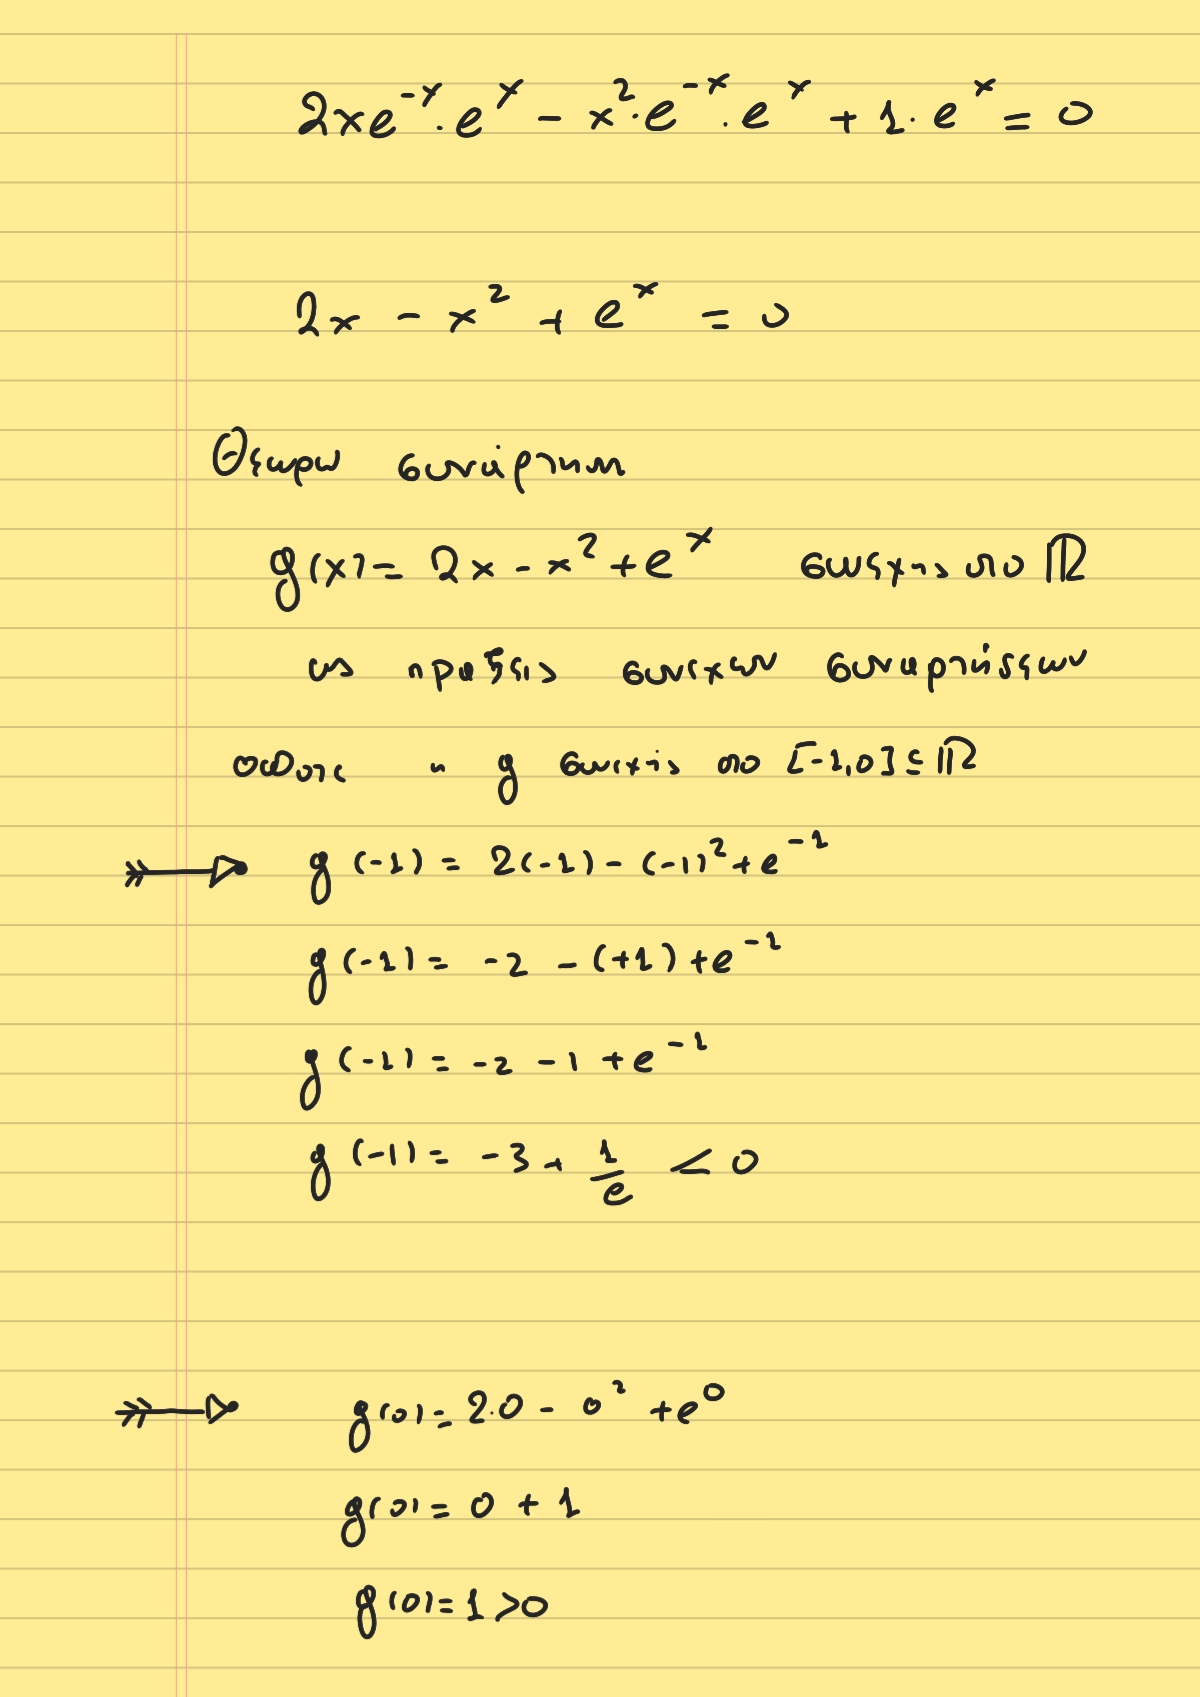 2xe^{-x}·e^x - x^2·e^{-x}·e^x + 1·e^x = 0
2x - x^2 + e^x = 0
Θεωρω συνάρτηση
g(x) = 2x - x^2 + e^x συνεχης στο ℝ
ως πραξεις συνεχων συναρτήσεων
οποτε η g συνεχής στο [-1,0] ⊆ ℝ
g(-1) = 2(-1) - (-1)^2 + e^{-1}
g(-1) = -2 - (+1) + e^{-1}
g(-1) = -2 - 1 + e^{-1}
g(-1) = -3 + \frac{1}{e} < 0
g(0) = 2·0 - 0^2 + e^0
g(0) = 0 + 1
g(0) = 1 > 0